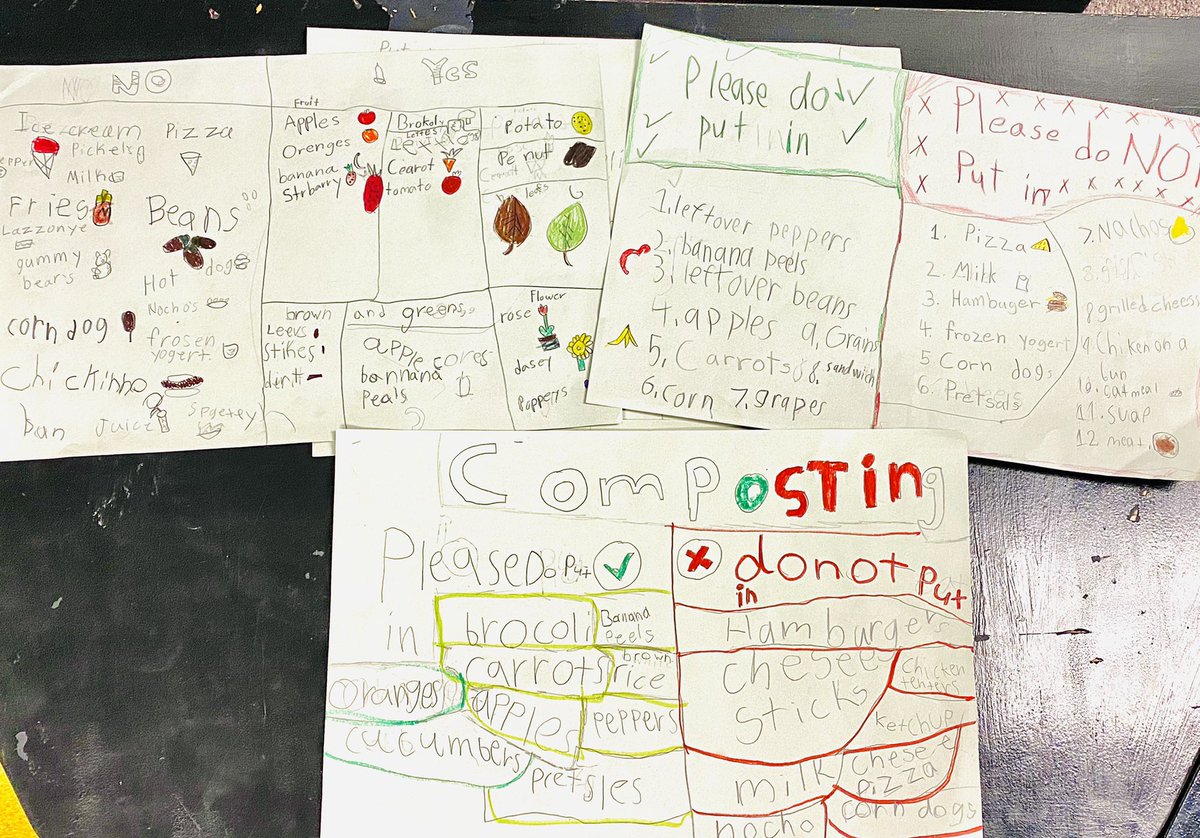 NO
Ice cream
Pizza
Pickelg
Milk
Fries
Beans
Lazzonye
gummy
bears
Hot dog
Nocho's
corn dog
frosen
yogert
Chickinho
ban
Juice
Spgetey
Yes
Fruit
Apples
Orenges
banana
Strbarry
Brokoly
Cearot
tomato
Potato
Penut
leafs
brown
Leevs
stikes
dirtt
and greens
apple cores
bannana
Peals
Flower
rose
dasey
Poppery's
Please do
put in
1. leftover peppers
2. banana peels
3. leftover beans
4. apples 9. Grains
5. Carrots 8. sandwich
6. corn 7. grapes
Please do NOT
Put in
1. Pizza
2. Milk
3. Hambuger
4. frozen yogert
5. Corn dogs
6. Pretsals
7. Nachos
8. grilled cheese
9. Chiken on a
bun
10. oatmeal
11. suap
12 meat.
Composting
Please Do Put
in
brocoli
Banana
Peels
carrots
brown
rice
oranges
apples
peppers
cucumbers
pretsles
donot Put
in
Hamburgers
chesees
sticks
Chicken
tenters
ketchup
milk
chesee
pizza
nocho
corn dogs